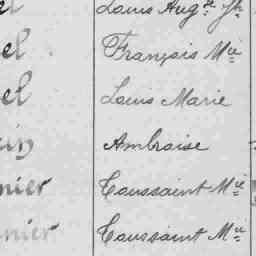 el Louis Aug.te J.ph
el François M.ie
el Louis Marie
in Ambroise
nier Toussaint M.ie
nier Toussaint M.ie